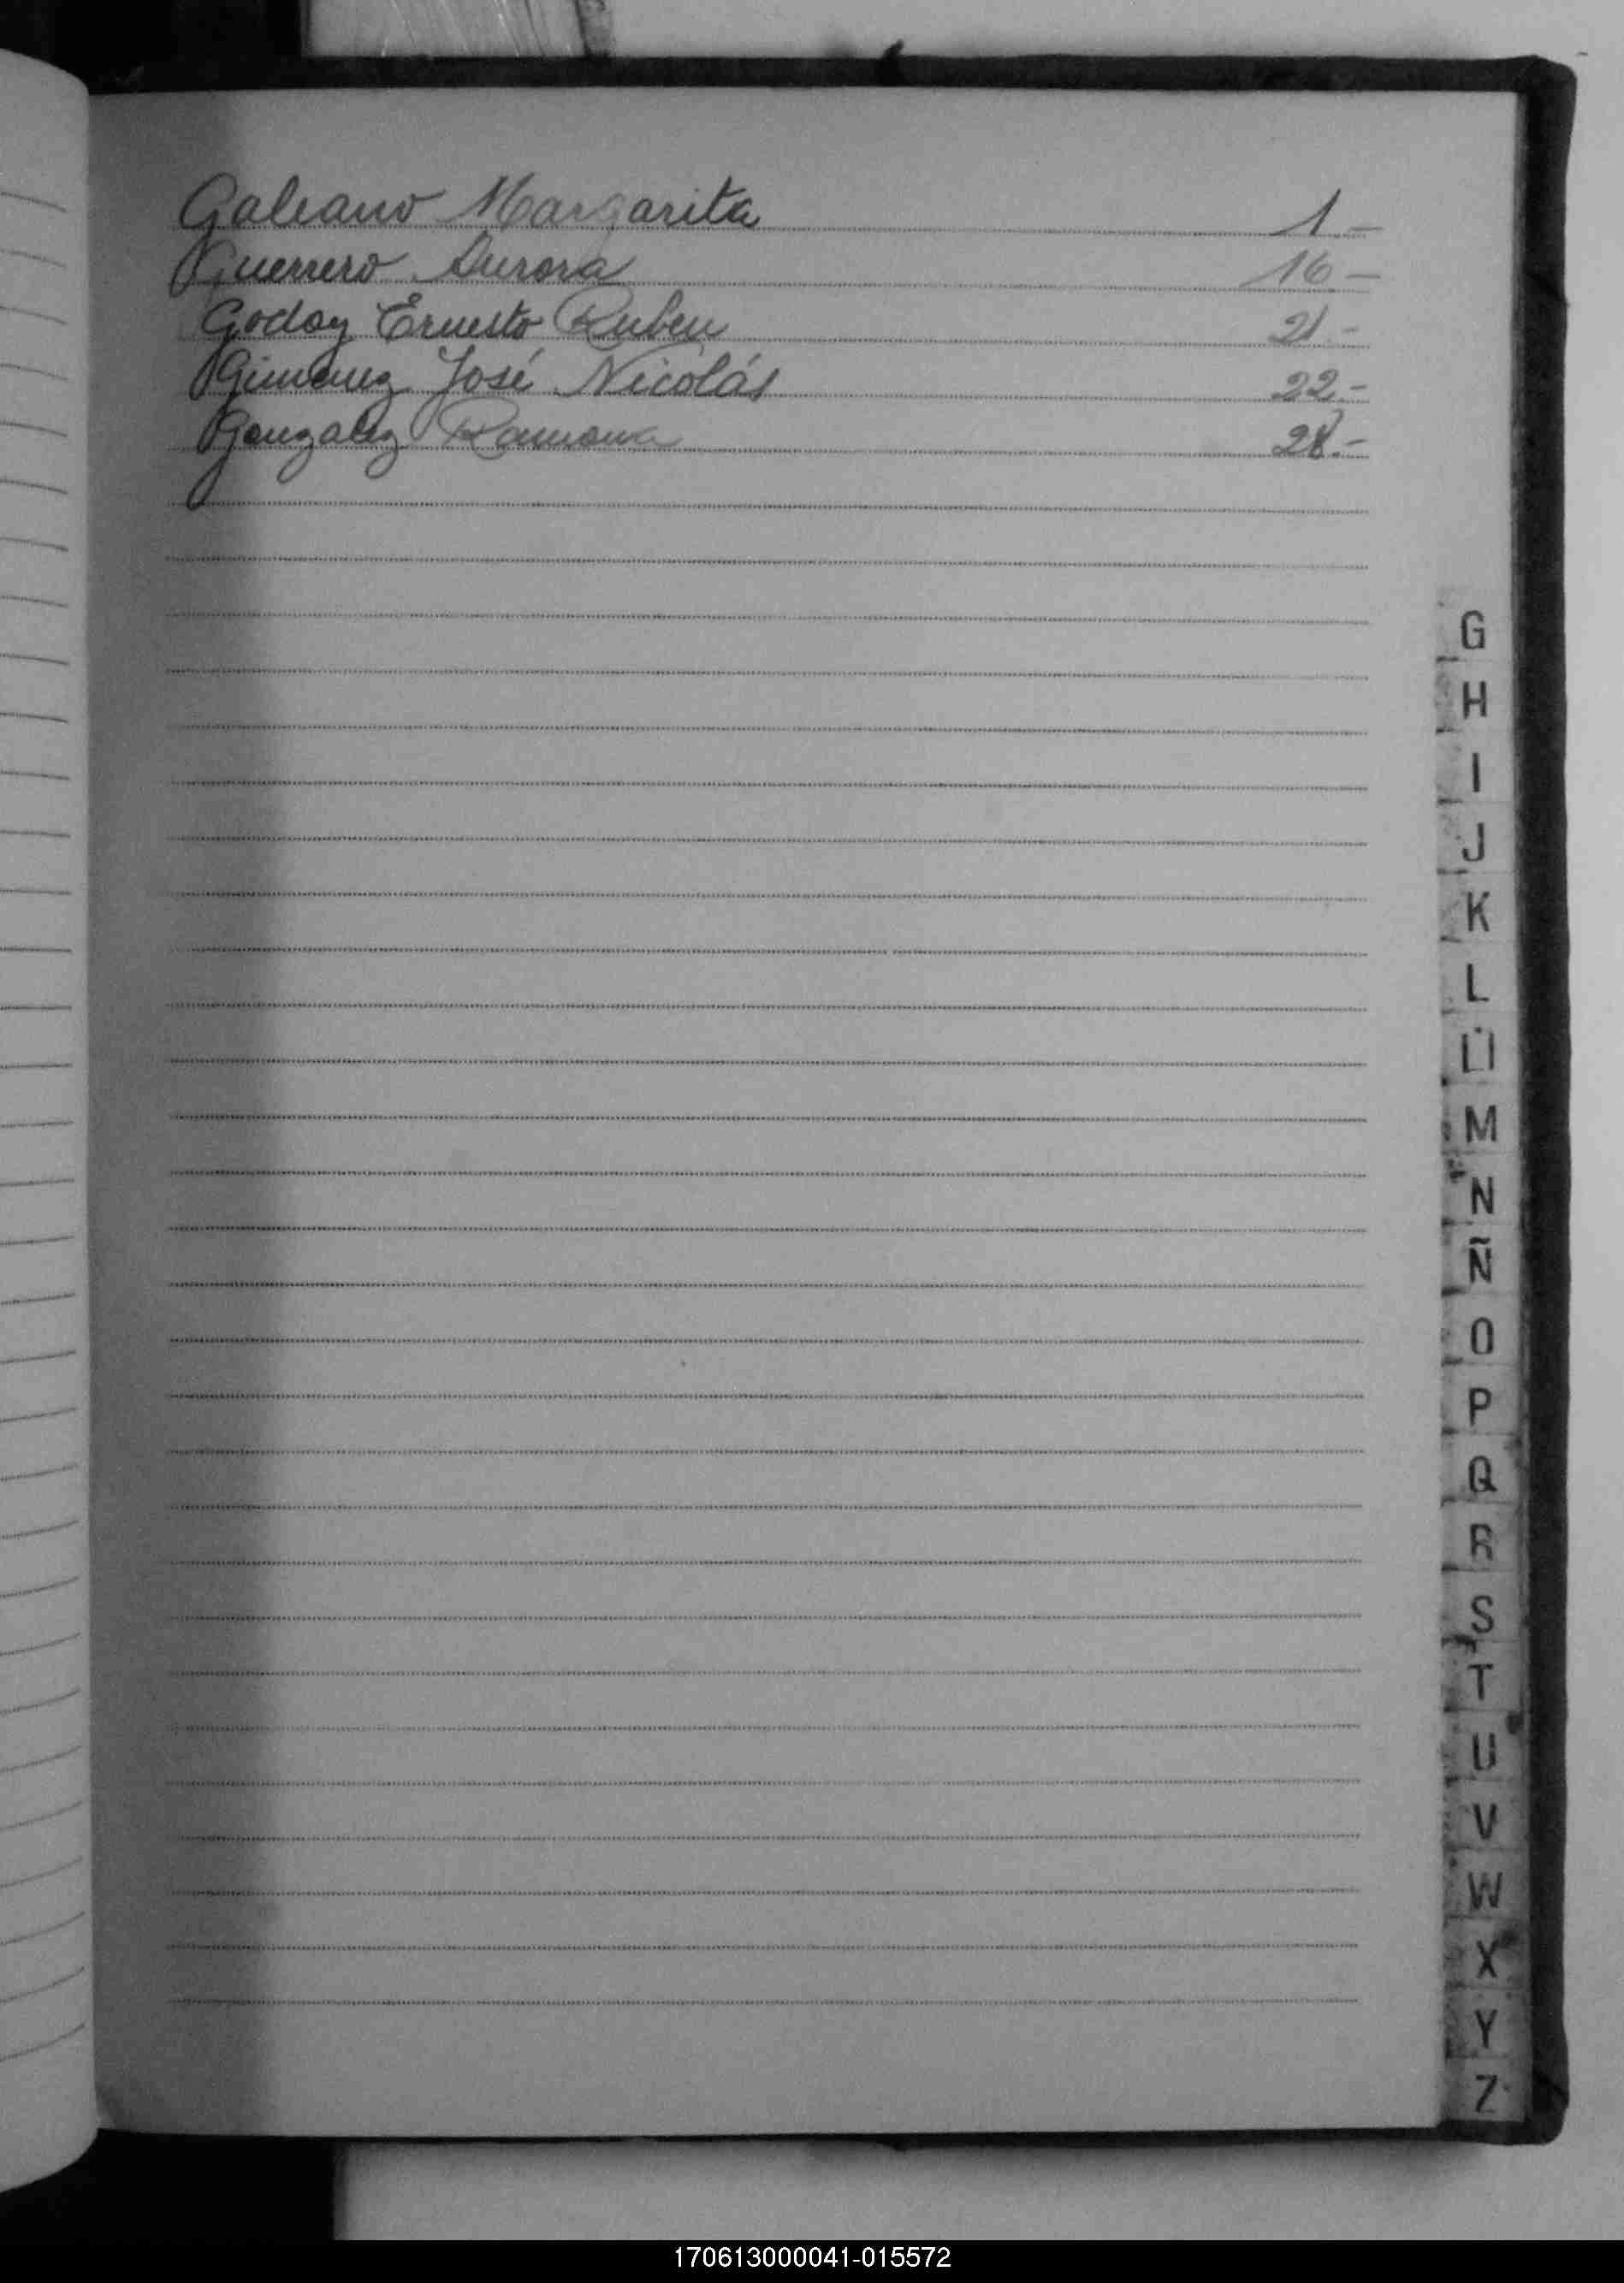 Galeano Margarita 1.-
Guerrero Aurora 16-
Godoy Ernesto Ruben 21.-
Gimenez José Nicolás 22.-
Gonzalez Ramona 28.-
G
H
I
J
K
L
Ll
M
N
Ñ
O
P
Q
R
S
T
U
V
W
X
Y
Z
170613000041-015572